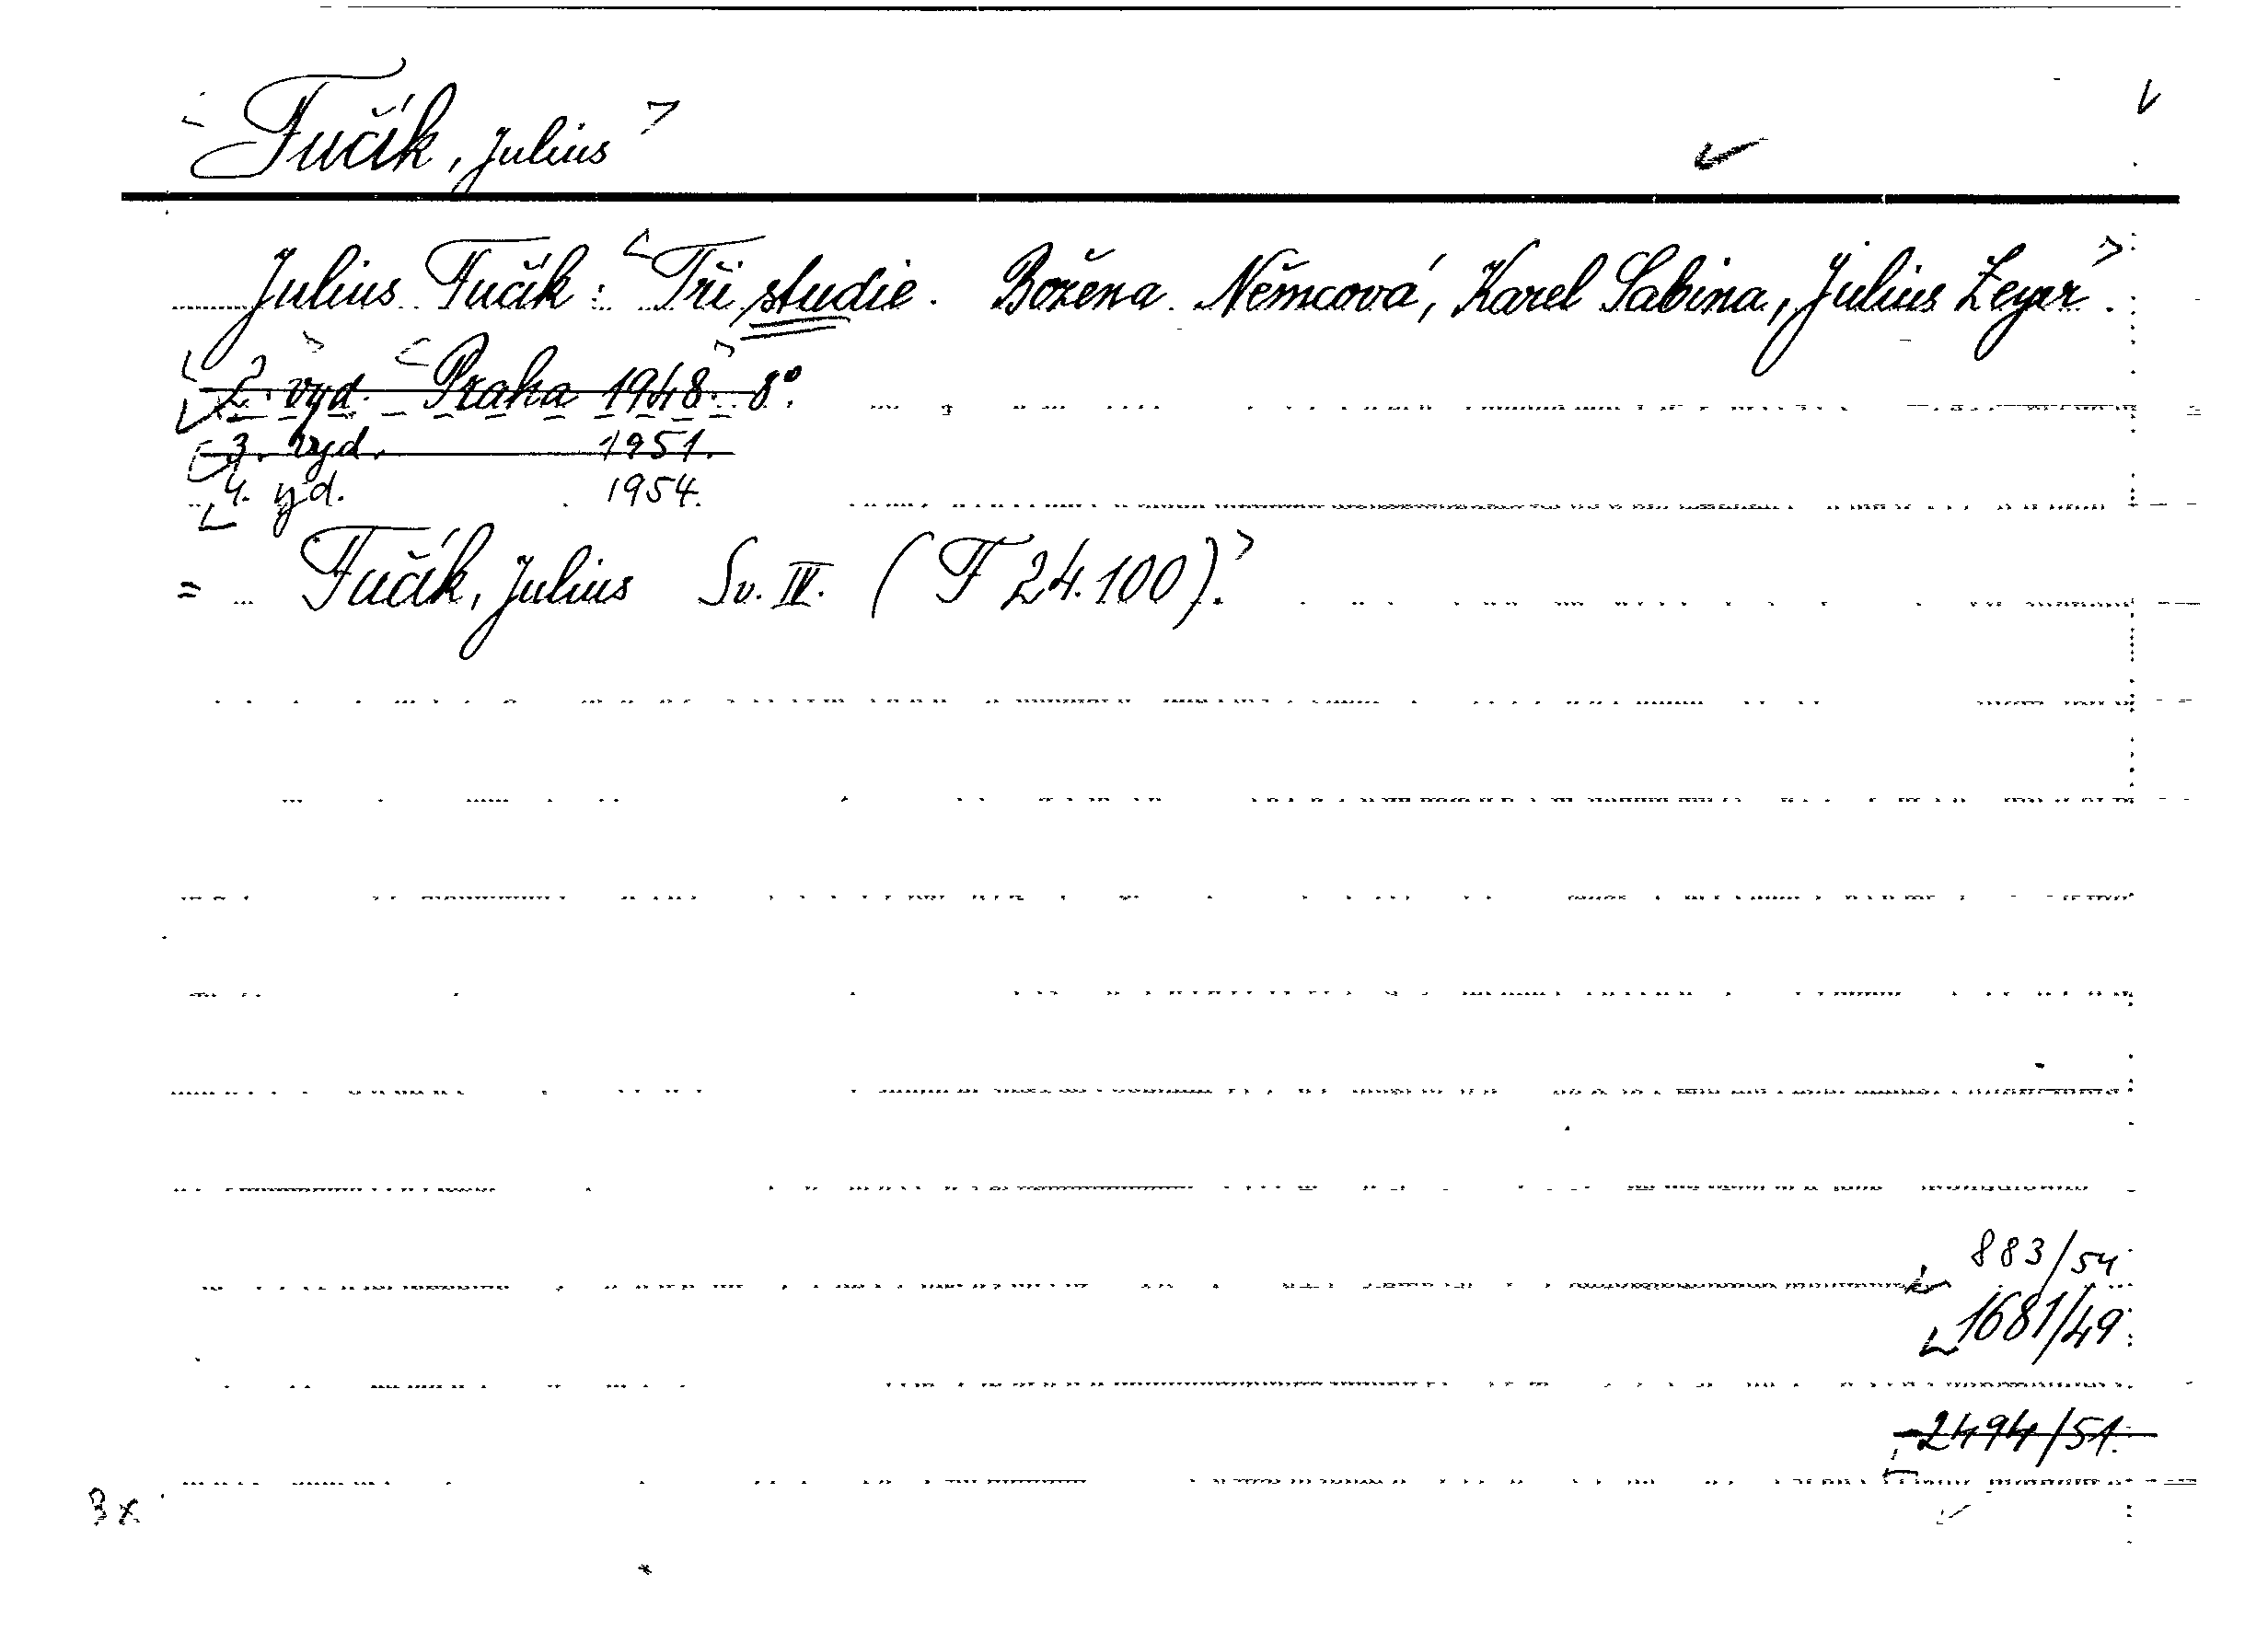 Fučík, Julius
Julius Fučík: Tři studie. Božena Němcová, Karel Sabina, Julius Zeyer.
2. vyd. Praha 1948. 8°.
3. vyd. 1951.
4. yd. 1954.
= Fučík, Julius Sv. IV. (F 24.100).
883/54
1681/49
2494/51.
3x